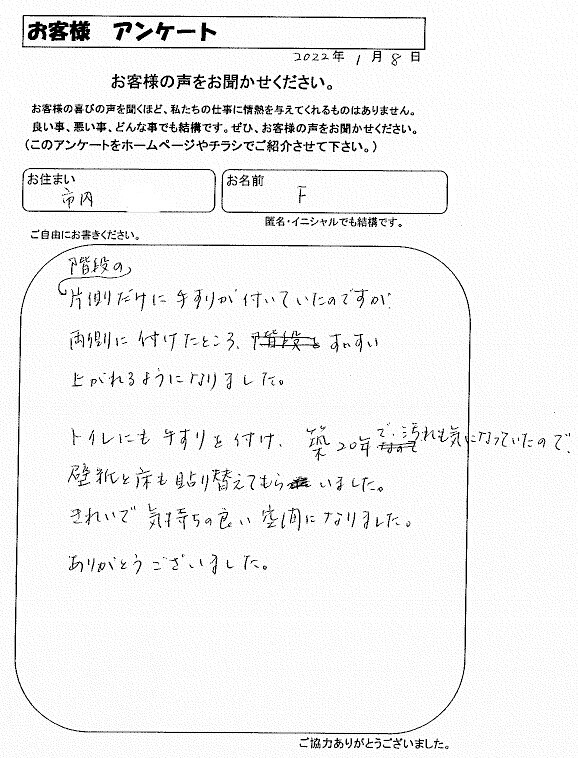 お客様 アンケート
2022年 1月 8日
お客様の声をお聞かせください。
お客様の喜びの声を聞くほど、私たちの仕事に情熱を与えてくれるものはありません。
良い事、悪い事、どんな事でも結構です。ぜひ、お客様の声をお聞かせください。
(このアンケートをホームページやチラシでご紹介させて下さい。)
お住まい
市内
お名前
F
匿名・イニシャルでも結構です。
ご自由にお書きください。
階段の
片側だけに手すりが付いていたのですが、
両側に付けたところ、階段も すいすい
上がれるようになりました。
トイレにも手すりを付け、築20年で汚れも気になっていたので、
壁紙と床も貼り替えてもらいました。
きれいで気持ちの良い空間になりました。
ありがとうございました。
ご協力ありがとうございました。